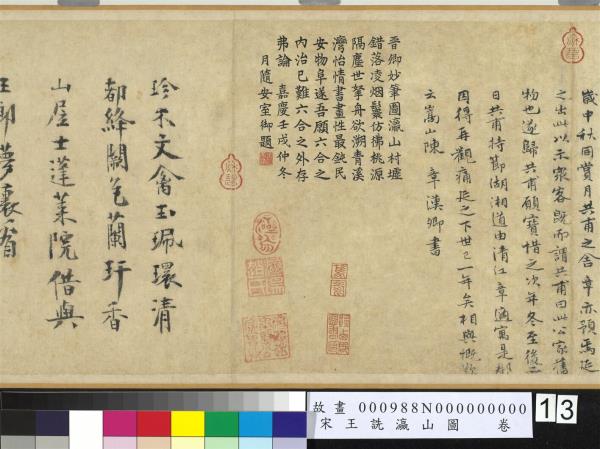 歲中秋同賞月共甫之舍章亦預焉延
之出此以示衆客既而謂共甫曰此公家舊
物也遂歸共甫願寶惜之次年冬至後二
日共甫持節湖湘道由清江章適寓是郡
因得再觀痛延之下世已一年矣相與慨歎
云嵩山陳章漢卿書
晉卿妙筆圖瀛山村墟
錯落凌烟鬟仿彿桃源
隔塵世拏舟欲溯青溪
灣怡情書畫性最鈍民
安物阜遂吾願六合之
內治已難六合之外存
弗論 嘉慶壬戌仲冬
月隨安室御題
珍木文禽玉珮環清
都絳闕芝蘭玕香
山居士蓬萊院借與
王郎夢裏看
故畫 000988N000000000
宋王詵瀛山圖 卷
13